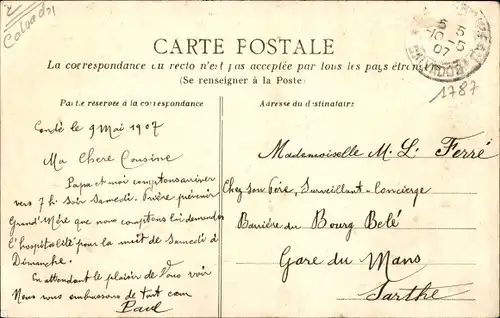 Calvados
CARTE POSTALE
La correspondance au recto n'est pas acceptée par tous les pays étrangers
(Se renseigner à la Poste)
5 5
10-5
07
1787
Partie réservée à la correspondance
Condé le 9 Mai 1907
Ma Chere Cousine
Papa et moi comptons arriver
vers 7 h. Soir Samedi. Prière prévenir
Grand'Mère que nous comptons lui demander
l'hospitalité pour la nuit de Samedi à
Dimanche.
En attendant le plaisir de Vous voir
Nous vous embrassons de tout cœur
Paul
Adresse du destinataire
Mademoiselle M. L. Ferré
Chez son Père, Surveillant-Concierge
Barrière du Bourg Belé
Gare du Mans
Sarthe